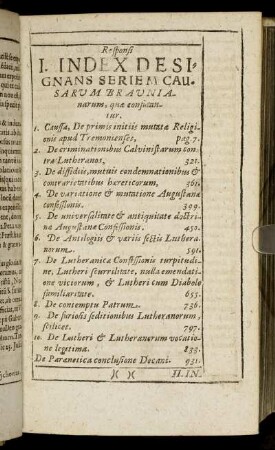 Responsi
I. INDEX DESI-
GNANS SERIEM CAU-
SARUM BRAUNIA-
narum, quæ confutan-
tur.
1. Caussa, De primis initiis mutatæ Religi-
onis apud Tremonienses, pag. 7.
2. De criminationibus Calvinistarum con-
tra Lutheranos, 321.
3. De dissidiis, mutuis condemnationibus &
contrarietatibus hæreticorum, 361.
4. De variatione & mutatione Augustanæ
confessionis. 399.
5. De universalitate & antiquitate doctri-
næ Augustanæ Confessionis. 450.
6. De Antilogiis & variis sectis Luthera-
norum. 591.
7. De Lutheranicæ Confessionis turpitudi-
ne, Lutheri scurrilitate, nulla emendati-
one vitiorum, & Lutheri cum Diabolo
familiaritate. 653.
8. De contemptu Patrum. 736.
9. De furiosis seditionibus Lutheranorum,
scilicet. 797.
10. De Lutheri & Lutheranorum vocatio-
ne legitima. 833.
De Parænetica conclusione Decani. 931.
)( )( II. IN-